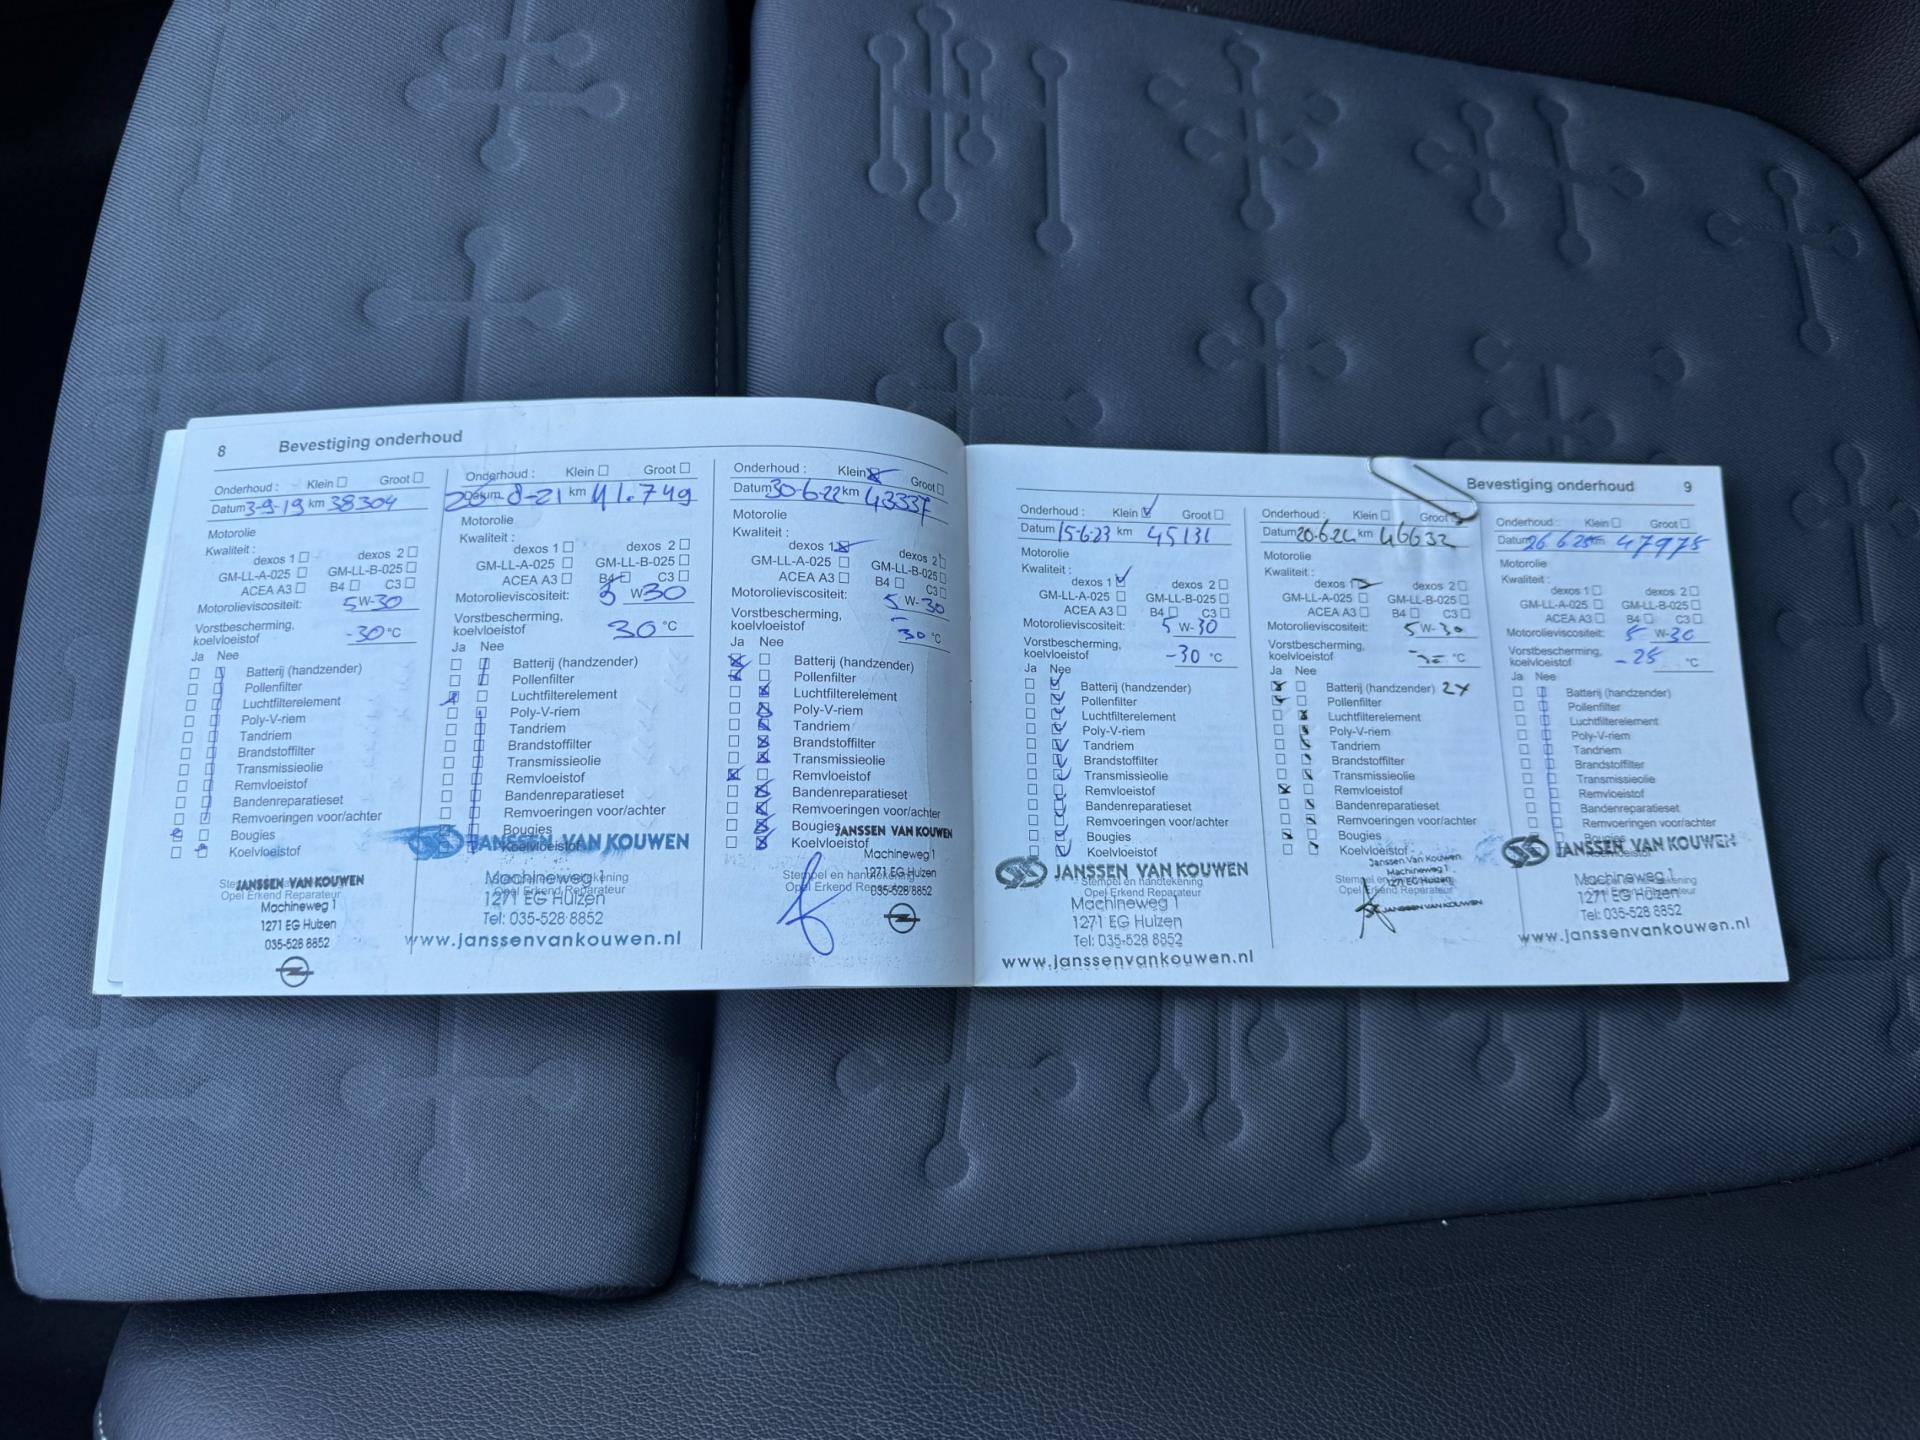 8 Bevestiging onderhoud
Onderhoud : Klein Groot
Datum 3-9-19 km 38304
Motorolie
Kwaliteit :
dexos 1 dexos 2
GM-LL-A-025 GM-LL-B-025
ACEA A3 B4 C3
Motorolieviscositeit: 5 W-30
Vorstbescherming,
koelvloeistof -30 °C
Ja Nee
Batterij (handzender)
Pollenfilter
Luchtfilterelement
Poly-V-riem
Tandriem
Brandstoffilter
Transmissieolie
Remvloeistof
Bandenreparatieset
Remvoeringen voor/achter
Bougies
Koelvloeistof
JANSSEN VAN KOUWEN
Opel Erkend Reparateur
Machineweg 1
1271 EG Huizen
035-528 8852
Onderhoud : Klein Groot
Datum 8-21 km 41.749
Motorolie
Kwaliteit :
dexos 1 dexos 2
GM-LL-A-025 GM-LL-B-025
ACEA A3 B4 C3
Motorolieviscositeit: 5 W 30
Vorstbescherming,
koelvloeistof 30 °C
Ja Nee
Batterij (handzender)
Pollenfilter
Luchtfilterelement
Poly-V-riem
Tandriem
Brandstoffilter
Transmissieolie
Remvloeistof
Bandenreparatieset
Remvoeringen voor/achter
Bougies
Koelvloeistof
JANSSEN VAN KOUWEN
Machineweg 1
Opel Erkend Reparateur
1271 EG Huizen
Tel: 035-528 8852
www.janssenvankouwen.nl
Onderhoud : Klein Groot
Datum 30-6-22 km 43337
Motorolie
Kwaliteit :
dexos 1 dexos 2
GM-LL-A-025 GM-LL-B-025
ACEA A3 B4 C3
Motorolieviscositeit: 5 W-30
Vorstbescherming,
koelvloeistof -30 °C
Ja Nee
Batterij (handzender)
Pollenfilter
Luchtfilterelement
Poly-V-riem
Tandriem
Brandstoffilter
Transmissieolie
Remvloeistof
Bandenreparatieset
Remvoeringen voor/achter
Bougies
Koelvloeistof
JANSSEN VAN KOUWEN
Machineweg 1
Stempel en handtekening
1271 EG Huizen
Opel Erkend
035-528 8852
Bevestiging onderhoud 9
Onderhoud : Klein Groot
Datum 15-6-23 km 45131
Motorolie
Kwaliteit :
dexos 1 dexos 2
GM-LL-A-025 GM-LL-B-025
ACEA A3 B4 C3
Motorolieviscositeit: 5 W-30
Vorstbescherming,
koelvloeistof -30 °C
Ja Nee
Batterij (handzender)
Pollenfilter
Luchtfilterelement
Poly-V-riem
Tandriem
Brandstoffilter
Transmissieolie
Remvloeistof
Bandenreparatieset
Remvoeringen voor/achter
Bougies
Koelvloeistof
JANSSEN VAN KOUWEN
Stempel en handtekening
Opel Erkend Reparateur
Machineweg 1
1271 EG Huizen
Tel: 035-528 8852
www.janssenvankouwen.nl
Onderhoud : Klein Groot
Datum 20-6-24 km 46632
Motorolie
Kwaliteit :
dexos 1 dexos 2
GM-LL-A-025 GM-LL-B-025
ACEA A3 B4 C3
Motorolieviscositeit: 5 W-30
Vorstbescherming,
koelvloeistof °C
Ja Nee
Batterij (handzender) 2x
Pollenfilter
Luchtfilterelement
Poly-V-riem
Tandriem
Brandstoffilter
Transmissieolie
Remvloeistof
Bandenreparatieset
Remvoeringen voor/achter
Bougies
Koelvloeistof
Janssen Van Kouwen
Machineweg 1
Stempel en
1271 EG Huizen
Opel Erkend Reparateur
JANSSEN VAN KOUWEN
Onderhoud : Klein Groot
Datum 26-6-25 km 47975
Motorolie
Kwaliteit :
dexos 1 dexos 2
GM-LL-A-025 GM-LL-B-025
ACEA A3 B4 C3
Motorolieviscositeit: 5 W-30
Vorstbescherming,
koelvloeistof -25 °C
Ja Nee
Batterij (handzender)
Pollenfilter
Luchtfilterelement
Poly-V-riem
Tandriem
Brandstoffilter
Transmissieolie
Remvloeistof
Bandenreparatieset
Remvoeringen voor/achter
Bougies
JANSSEN VAN KOUWEN
Machineweg 1
1271 EG Huizen
Tel: 035-528 8852
www.janssenvankouwen.nl